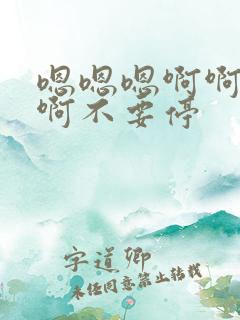 嗯嗯嗯啊啊
啊不要停
字道卿
未经同意禁止转载